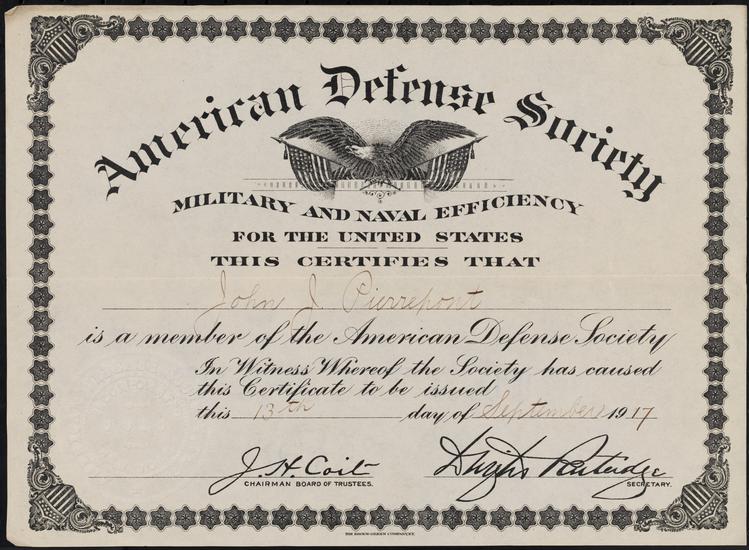 American Defense Society
MILITARY AND NAVAL EFFICIENCY
FOR THE UNITED STATES
THIS CERTIFIES THAT
John J. Pierrepont
is a member of the American Defense Society
In Witness Whereof the Society has caused
this Certificate to be issued
this 13th day of September 1917
J. H. Coit
CHAIRMAN BOARD OF TRUSTEES.
SECRETARY.